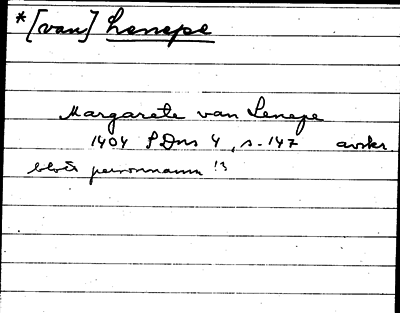 * [van] Lenepe
Margarete van Lenepe
1404 SDns 4, s. 147 avskr.
blott personnamn